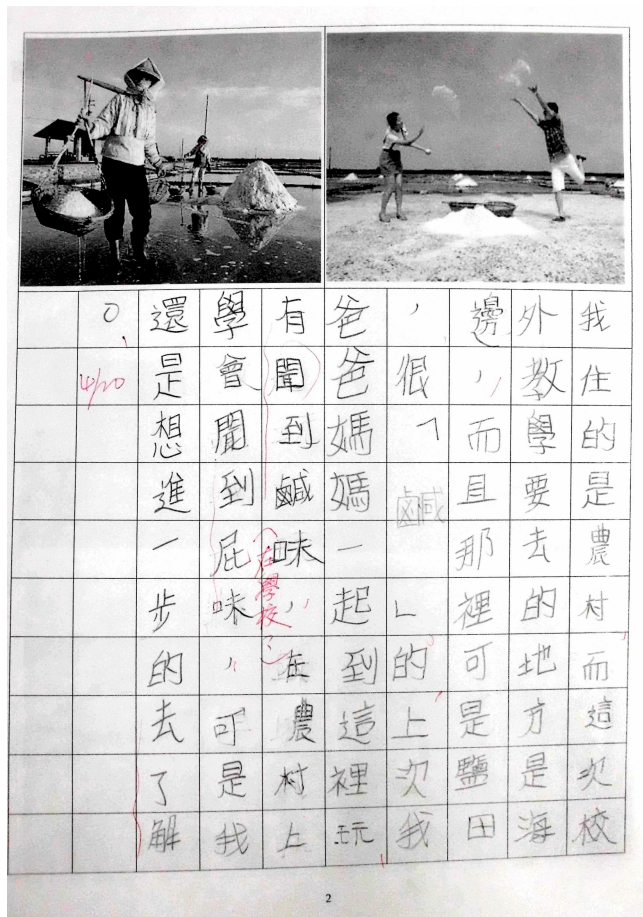 我住的是農村而這次校
外教學要去的地方是海
邊，而且那裡可是鹽田
，很「鹹」的上次我
爸爸媽媽一起到這裡玩
有聞到鹹味，在農村上
(在學校)
學會聞到屁味，可是我
還是想進一步的去了解
。
4/20
2